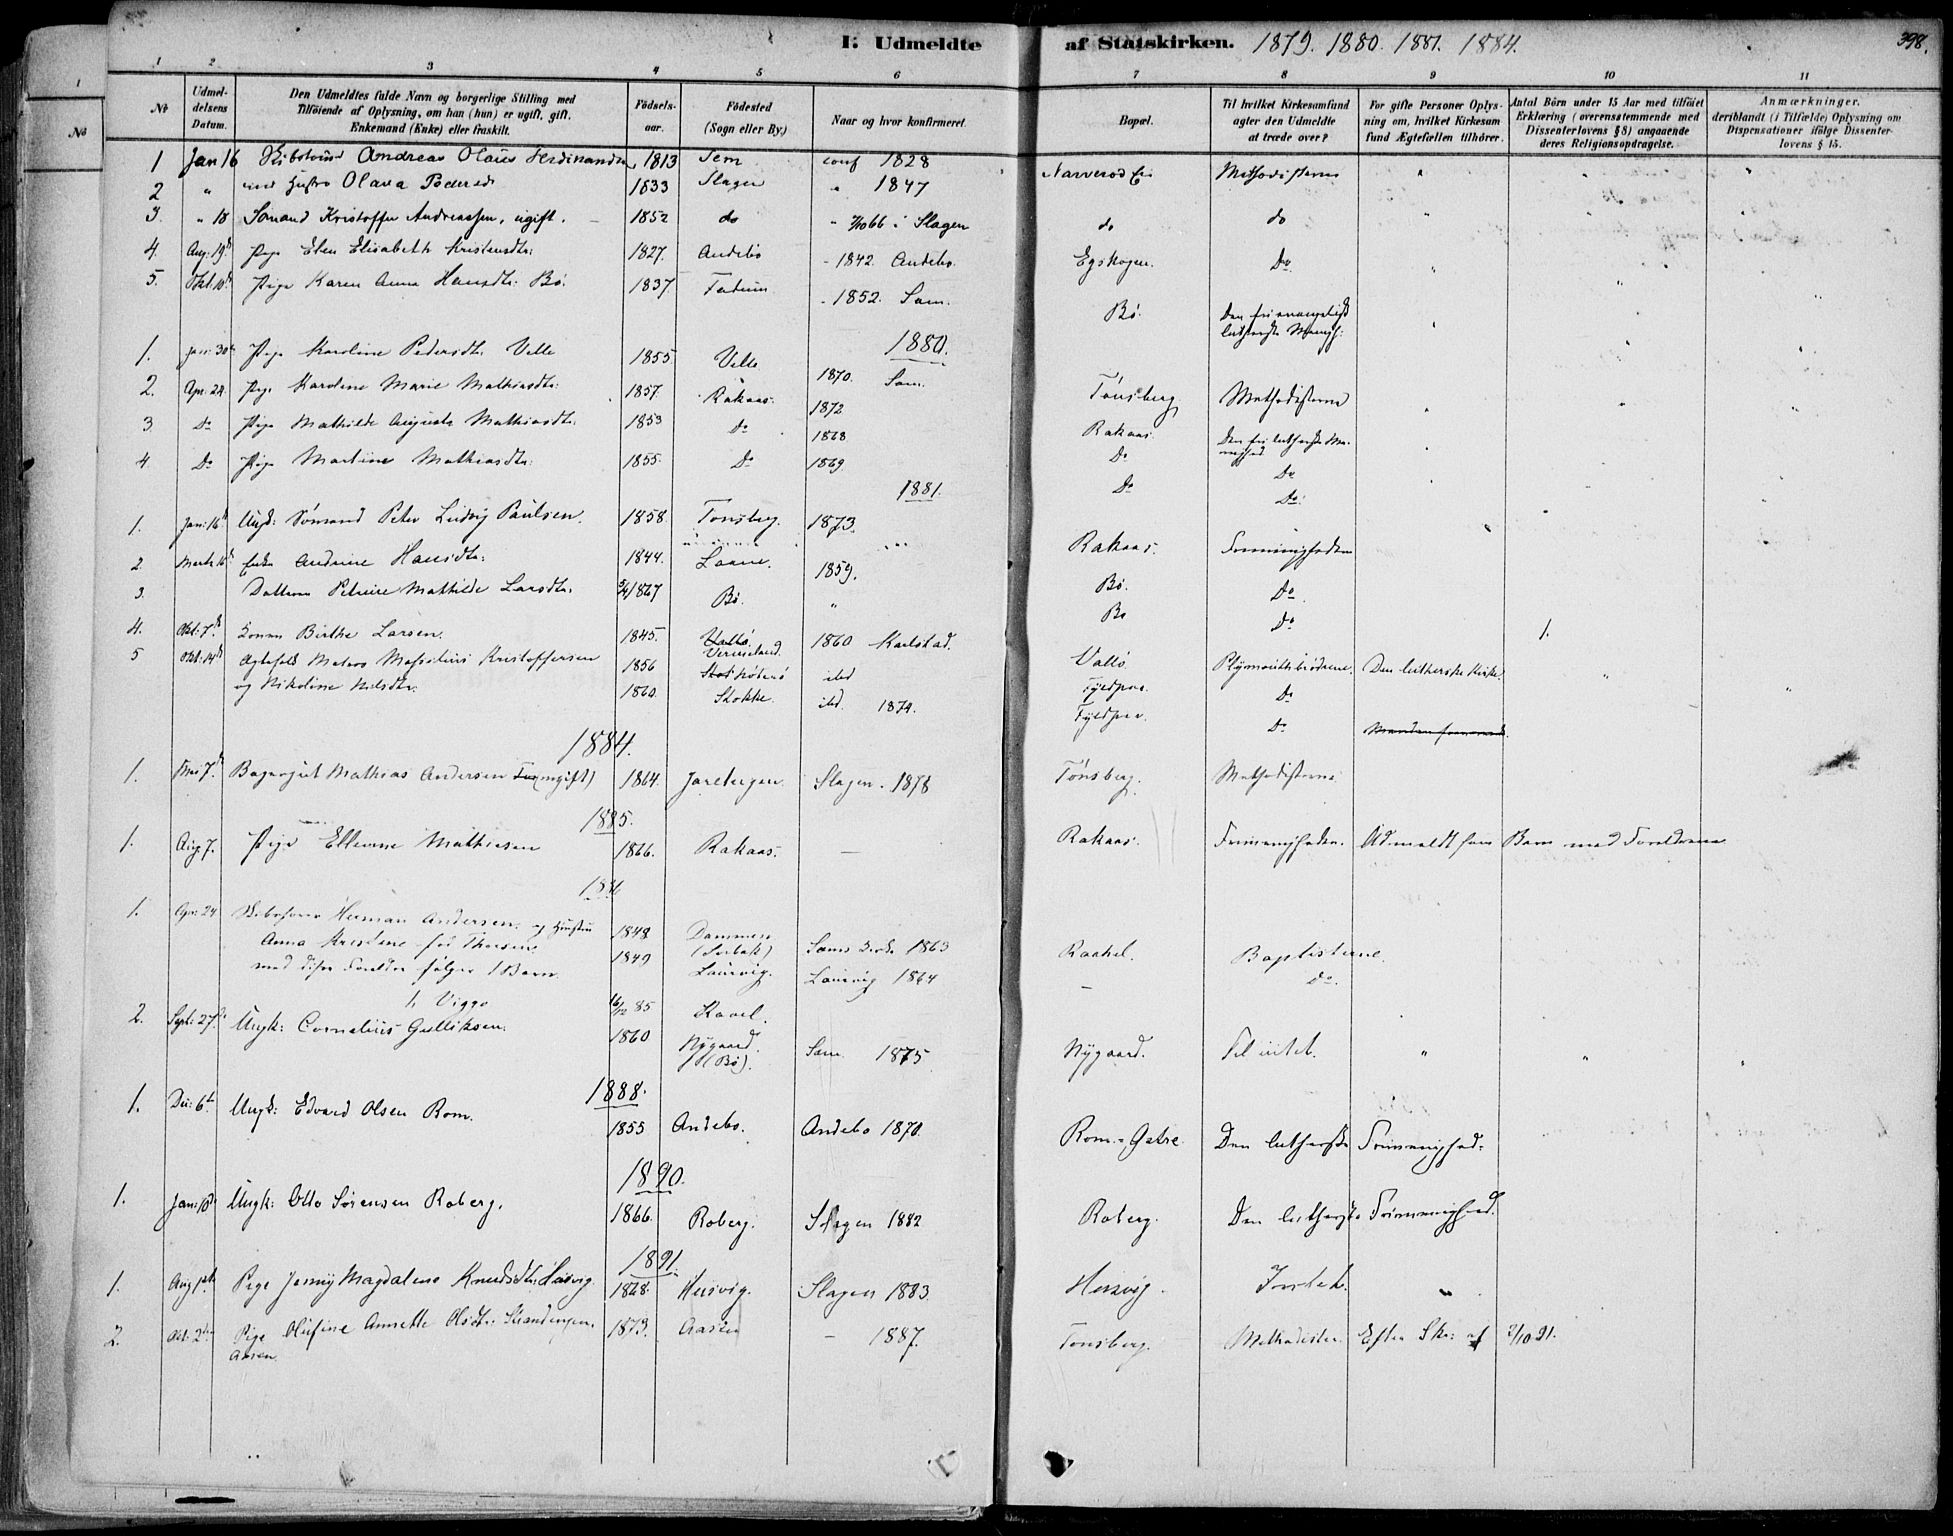 I: Udmeldte af Statskirken. 1879. 1880. 1881. 1884. 398.
1 2 3 4 5 6 7 8 9 10 11
No
Udmeldelsens Datum.
Den Udmeldtes fulde Navn og borgerlige Stilling med Tilföiende af Oplysning, om han (hun) er ugift, gift, Enkemand (Enke) eller fraskilt.
Födselsaar.
Födested (Sogn eller By)
Naar og hvor konfirmeret.
Bopæl.
Til hvilket Kirkesamfund agter den Udmeldte at træde over?
For gifte Personer Oplysning om, hvilket Kirkesamfund Ægtefællen tilhörer.
Antal Börn under 15 Aar med tilföiet Erklæring (overensstemmende med Dissenterlovens § 8) angaaende deres Religionsopdragelse.
Anmærkninger, deriblandt (i Tilfælde) Oplysning om Dispensationer ifölge Dissenterlovens § 15.
1 Jan 16 Andreas Olaus Ferdinandsen 1813 Sem conf 1828 Narverød Methodisterne "
2 " med Hustro Olava Pedersd 1833 Slagen " 1847
3. " 18 Sømand Kristoffer Andreassen, ugift. 1852 do " 1/10 66 i Slagen do do "
4. Aug: 19d Pige Elen Elisabeth Kristensdtr: 1827. Andebo - 1842. Andebo. Egskogen. Do
5. Okt: 10d Pige Karen Anna Hansdtr: Bö. 1837. - 1852. Sem. Bö. Den fri evangelisk lutherske Menigh:
1880.
1. Jan: 30 Pige Karoline Pedersdtr. Velle 1855 Velle 1870. Sem. Tönsberg Methodisterne
2. Apr. 24. Pige Karoline Marie Mathiasdtr: 1857. Rakaas. 1872 Rakaas. Den fri lutherske Menighed
3. Do Pige Mathilde Augusta Mathiasdtr. 1853 Do. 1868 Do Do
4. Do Pige Martine Mathiasdtr: 1855. Do 1869 Do Do.
1881.
1. Jan: 16d Ungk: Sömand Peter Ludvig Paulsen. 1858 Tonsberg. 1873. Rakaas. Frimenigheden
2. Marts 16d Enke Andrine Hansdtr: 1844. 1859. Bö. Do.
3. Datteren Petrine Mathilde Larsdtr. 1867 Bö. " Bö Do
4. Okt: 7d Konen Birthe Larsen. 1845. Vermeland. 1860 Karlstad. Vallö Plymouthsbrödrene. Den lutherske Kirke. 1.
5 Okt: 14d Ægtefolk Matros Kristoffersen 1856 ibd Do
og Nikoline Nilsdtr. 1860. Stokke. ibd. 1874. Do
1884.
1. 7d Bagersvend Mathias Andersen (ugift) 1864. Jarebergene. Slagen. 1878 Tönsberg. Methodisterne
1885.
1. Aug. 7. Pige Ellevine Mathiesen 1866. Rakaas. — Rakaas. Frimenigheden. Udmeldt som Barn med Forældrene
1886
1. Apr: 24 Herman Andersen og Hustru 1848 Sems Kirke 1863 Raahel. Baptisterne.
Anna Kristine född Thorsen 1849 Laurvig. Laurvig 1864 - do.
med disse Foreldre følger 1 Barn
1. Viggo 16/12 85
2. Sept: 27d Ungk: Cornelius Gulliksen. 1860 Nygaard (Bö). Sem 1875 Nygaard. Til intet. " " "
1888.
1. Dec: 6t Ungk: Edvard Olsen Rom. 1855 Andebo. Andebo 1870. Rom. Den lutherske Frimenighed.
1890.
1. Jan: 10d Ungk: Otto Sørensen Roberg. 1866. Roberg. Slagen 1882 Roberg. Den lutherske Frimenighed.
1891.
1. Aug 1st Pige Jenny Magdalene Knudsdtr: Husvig 1868. Husvig. Slagen 1883. Husvig. Intet. "
2. Okt: 2den Pige Olufine Annette Olsdtr: 1873. Aasen — 1887. Tonsberg. Methodister. Efter Skr: af 2/10 91.
Aasen.